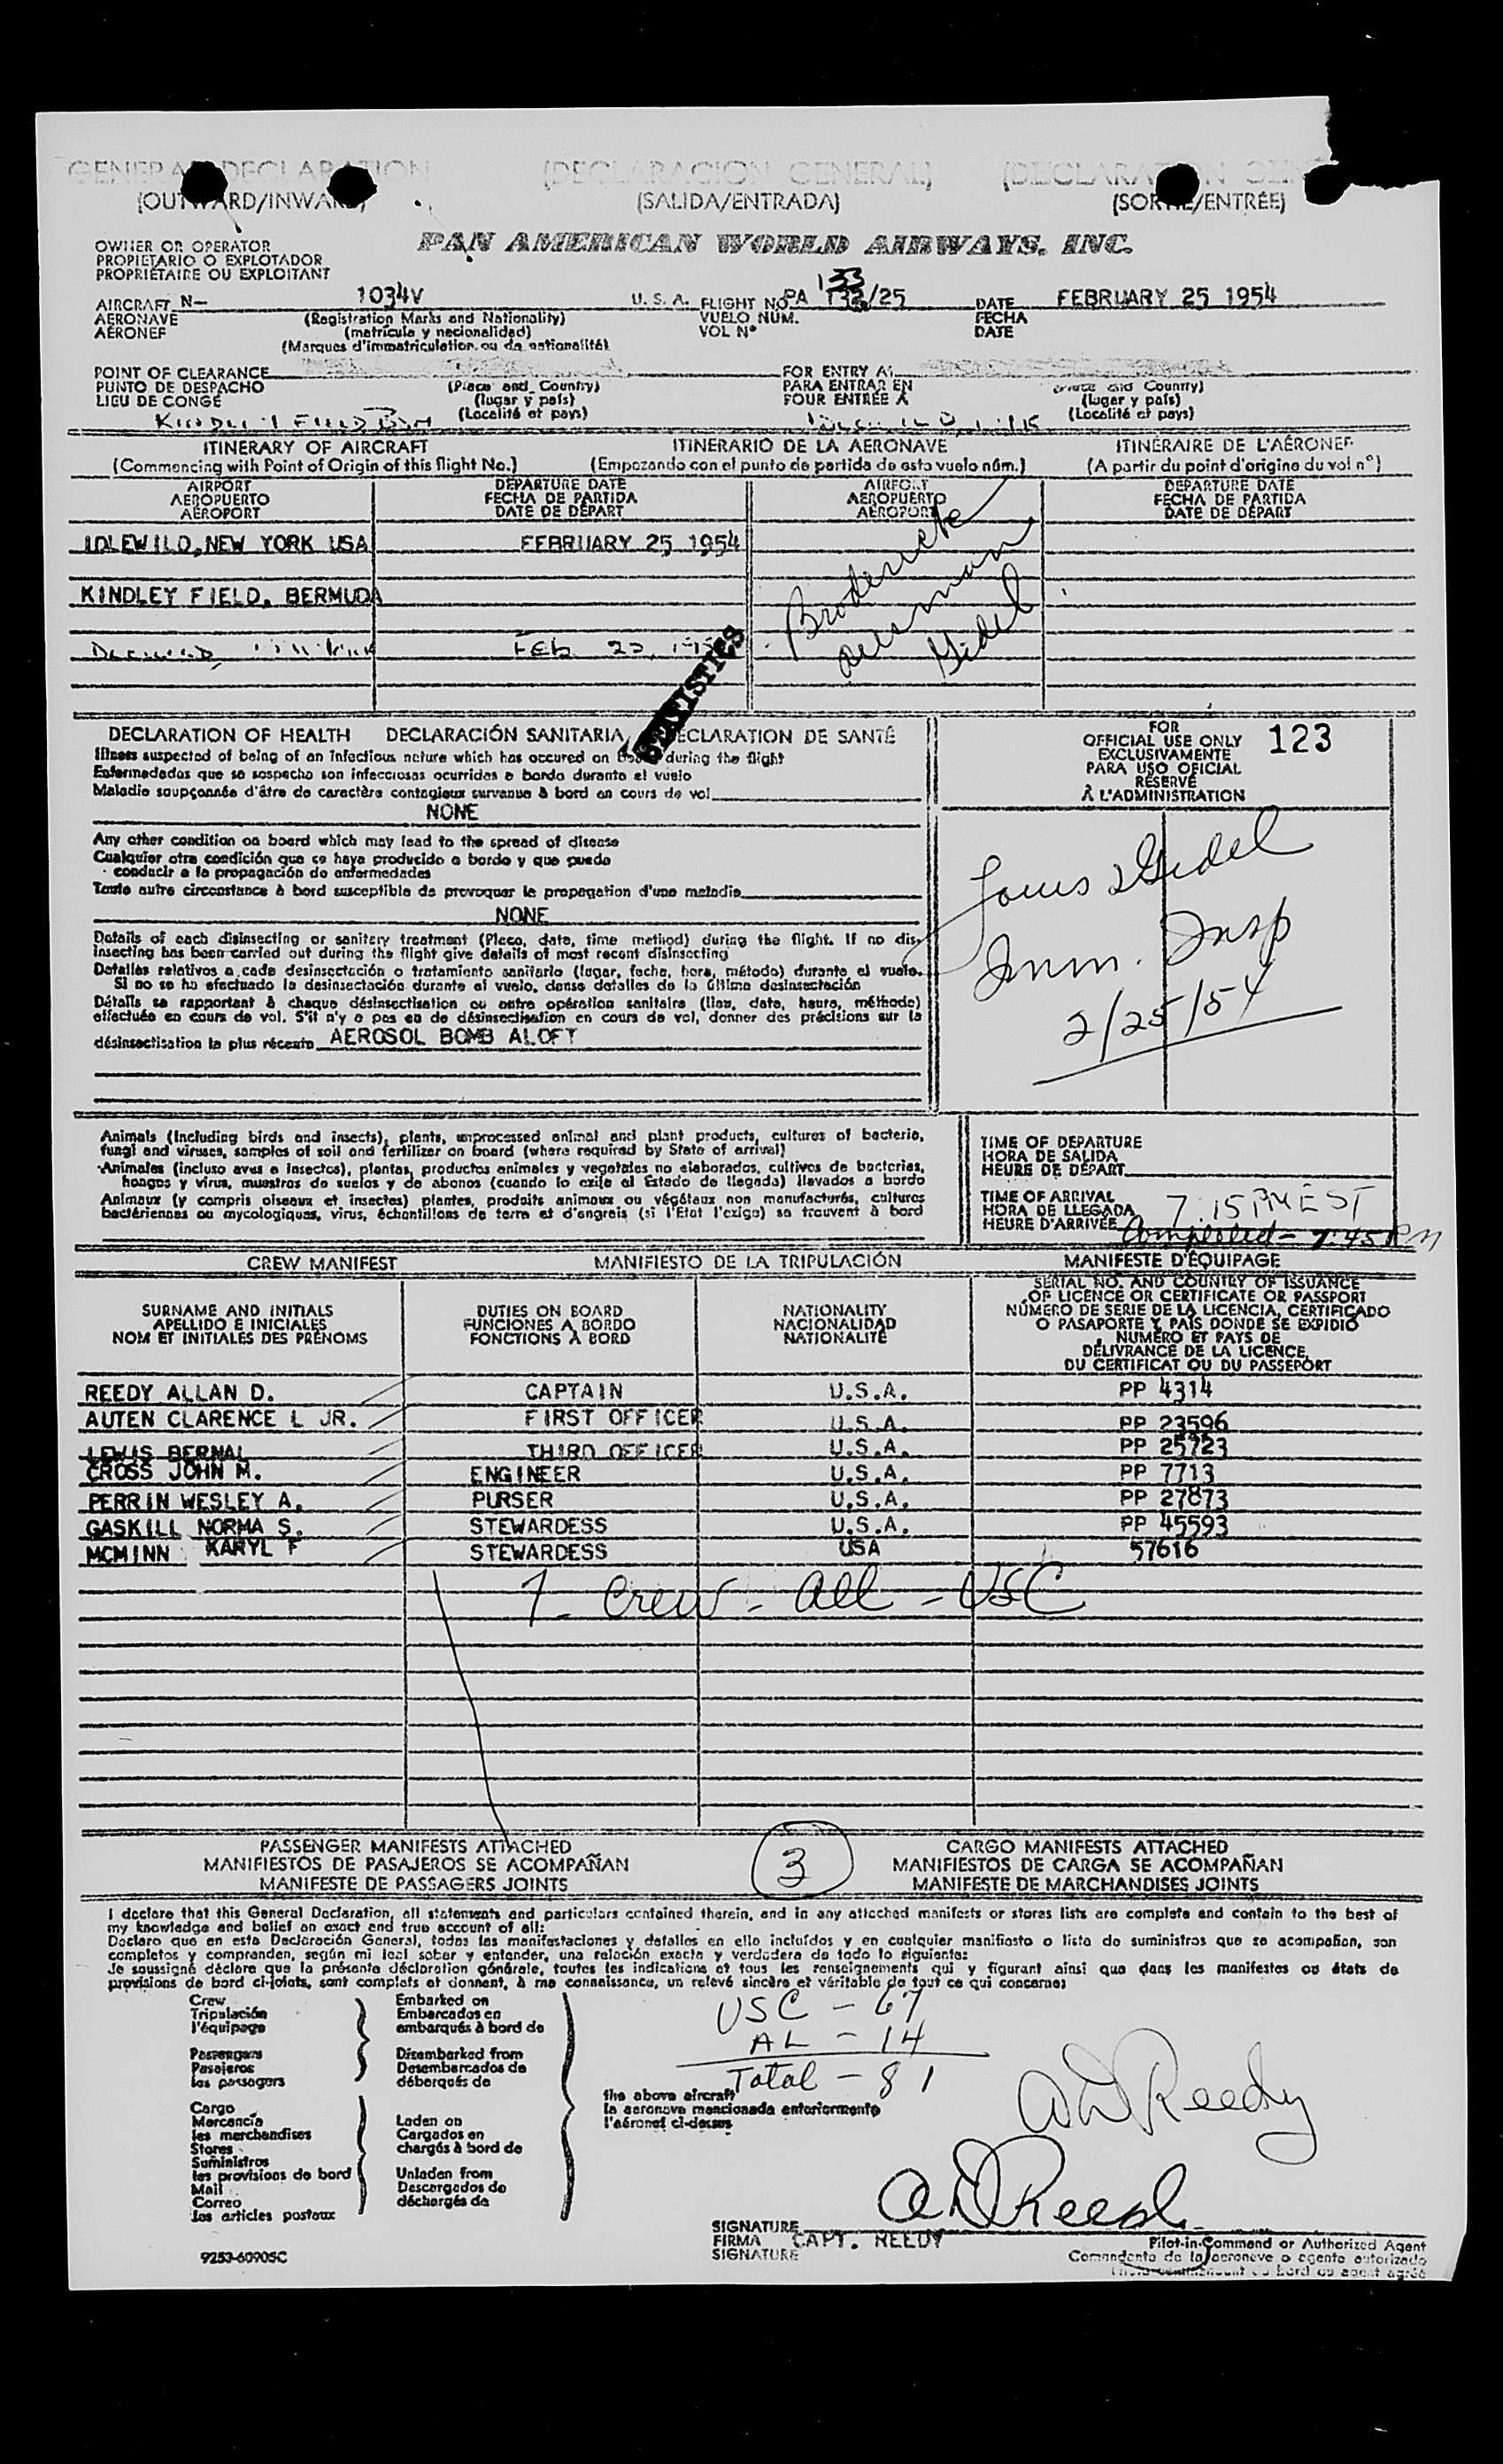 GENERAL DECLARATION (DECLARACION GENERAL) (DECLARATION
(OUTWARD/INWARD) (SALIDA/ENTRADA) (SORTIE/ENTRÉE)
OWNER OR OPERATOR
PROPIETARIO O EXPLOTADOR
PROPRIÉTAIRE OU EXPLOITANT
PAN AMERICAN WORLD AIRWAYS, INC.
AIRCRAFT N- 1034V U. S. A. FLIGHT NO. PA 133/25 DATE FEBRUARY 25 1954
AERONAVE (Registration Marks and Nationality) VUELO NUM. FECHA
AÉRONEF (matrícula y nacionalidad) VOL Nº DATE
(Marques d'immatriculation ou de nationalité)
POINT OF CLEARANCE FOR ENTRY AT
PUNTO DE DESPACHO (Place and Country) PARA ENTRAR EN (Place and Country)
LIEU DE CONGÉ (lugar y país) POUR ENTRÉE À (lugar y país)
(Localité et pays) (Localité et pays)
KINDLEY FIELD BDA
ITINERARY OF AIRCRAFT ITINERARIO DE LA AERONAVE ITINÉRAIRE DE L'AÉRONEF
(Commencing with Point of Origin of this flight No.) (Empezando con el punto de partida de esta vuelo núm.) (A partir du point d'origine du vol nº)
AIRPORT DEPARTURE DATE AIRPORT DEPARTURE DATE
AEROPUERTO FECHA DE PARTIDA AEROPUERTO FECHA DE PARTIDA
AÉROPORT DATE DE DÉPART AÉROPORT DATE DE DÉPART
IDLEWILD, NEW YORK USA FEBRUARY 25 1954
KINDLEY FIELD, BERMUDA
Broderick
Gidel
STATISTICS
DECLARATION OF HEALTH DECLARACIÓN SANITARIA DECLARATION DE SANTÉ
Illness suspected of being of an infectious nature which has occured on board during the flight
Enfermedades que se sospecha son infecciosas ocurridas a bordo durante el vuelo
Maladie soupçonnée d'être de caractère contagieux survenue à bord en cours de vol
NONE
Any other condition on board which may lead to the spread of disease
Cualquier otra condición que se haya producido a bordo y que pueda
conducir a la propagación de enfermedades
Toute autre circonstance à bord susceptible de provoquer la propagation d'une maladie
NONE
Details of each disinsecting or sanitary treatment (Place, date, time method) during the flight. If no dis-
insecting has been carried out during the flight give details of most recent disinsecting
Detalles relativos a cada desinsectación o tratamiento sanitario (lugar, fecha, hora, método) durante el vuelo.
Si no se ha efectuado la desinsectación durante el vuelo, dense detalles de la última desinsectación
Détails se rapportant à chaque désinsectisation ou autre opération sanitaire (lieu, date, heure, méthode)
effectuée en cours de vol. S'il n'y a pas eu de désinsectisation en cours de vol, donner des précisions sur la
désinsectisation la plus récente AEROSOL BOMB ALOFT
FOR
OFFICIAL USE ONLY 123
EXCLUSIVAMENTE
PARA USO OFICIAL
RÉSERVÉ
À L'ADMINISTRATION
Louis Gidel
Imm. Insp
2/25/54
Animals (Including birds and insects), plants, unprocessed animal and plant products, cultures of bacteria,
fungi and viruses, samples of soil and fertilizer on board (where required by State of arrival)
Animales (incluso aves e insectos), plantas, productos animales y vegetales no elaborados, cultivos de bacterias,
hongos y virus, muestras de suelos y de abonos (cuando lo exija el Estado de llegada) llevados a bordo
Animaux (y compris oiseaux et insectes) plantes, produits animaux ou végétaux non manufacturés, cultures
bactériennes ou mycologiques, virus, échantillons de terre et d'engrais (si l'Etat l'exige) se trouvent à bord
TIME OF DEPARTURE
HORA DE SALIDA
HEURE DE DÉPART
TIME OF ARRIVAL
HORA DE LLEGADA 7:15 PM EST
HEURE D'ARRIVÉE Completed - 7:45 PM
CREW MANIFEST MANIFIESTO DE LA TRIPULACIÓN MANIFESTE D'ÉQUIPAGE
SURNAME AND INITIALS
APELLIDO E INICIALES
NOM ET INITIALES DES PRÉNOMS
DUTIES ON BOARD
FUNCIONES A BORDO
FONCTIONS À BORD
NATIONALITY
NACIONALIDAD
NATIONALITÉ
SERIAL NO. AND COUNTRY OF ISSUANCE
OF LICENCE OR CERTIFICATE OR PASSPORT
NÚMERO DE SERIE DE LA LICENCIA, CERTIFICADO
O PASAPORTE Y PAÍS DONDE SE EXPIDIÓ
NUMÉRO ET PAYS DE
DÉLIVRANCE DE LA LICENCE,
DU CERTIFICAT OU DU PASSEPORT
REEDY ALLAN D. CAPTAIN U.S.A. PP 4314
AUTEN CLARENCE L JR. FIRST OFFICER U.S.A. PP 23596
LEWIS BERNAL THIRD OFFICER U.S.A. PP 25723
CROSS JOHN M. ENGINEER U.S.A. PP 7713
PERRIN WESLEY A. PURSER U.S.A. PP 27873
GASKILL NORMA S. STEWARDESS U.S.A. PP 45593
MCMINN KARYL F STEWARDESS USA 57616
7 - Crew - all - USC
PASSENGER MANIFESTS ATTACHED CARGO MANIFESTS ATTACHED
MANIFIESTOS DE PASAJEROS SE ACOMPAÑAN 3 MANIFIESTOS DE CARGA SE ACOMPAÑAN
MANIFESTE DE PASSAGERS JOINTS MANIFESTE DE MARCHANDISES JOINTS
I declare that this General Declaration, all statements and particulars contained therein, and in any attached manifests or stores lists are complete and contain to the best of
my knowledge and belief an exact and true account of all:
Declaro que en esta Declaración General, todas las manifestaciones y detalles en ella incluídos y en cualquier manifiesto o lista de suministros que se acompañan, son
completos y comprenden, según mi leal saber y entender, una relación exacta y verdadera de todo lo siguiente:
Je soussigné déclare que la présente déclaration générale, toutes les indications et tous les renseignements qui y figurant ainsi que dans les manifestes ou états de
provisions de bord ci-joints, sont complets et donnent, à ma connaissance, un relevé sincère et véritable de tout ce qui concerne:
Crew Embarked on
Tripulación Embarcados en
l'équipage embarqués à bord de
Passengers Disembarked from
Pasajeros Desembarcados de
les passagers débarqués de
Cargo
Mercancía Laden on
les marchandises Cargados en
Stores chargés à bord de
Suministros
les provisions de bord Unladen from
Mail Descargados de
Correo déchargés de
les articles postaux
USC - 67
AL - 14
Total - 81
the above aircraft
la aeronave mencionada anteriormente
l'aéronef ci-dessus
A D Reedy
A D Reedy
SIGNATURE
FIRMA CAPT. REEDY
SIGNATURE
Pilot-in-Command or Authorized Agent
Comandante de la aeronave o agente autorizado
9253-60905C